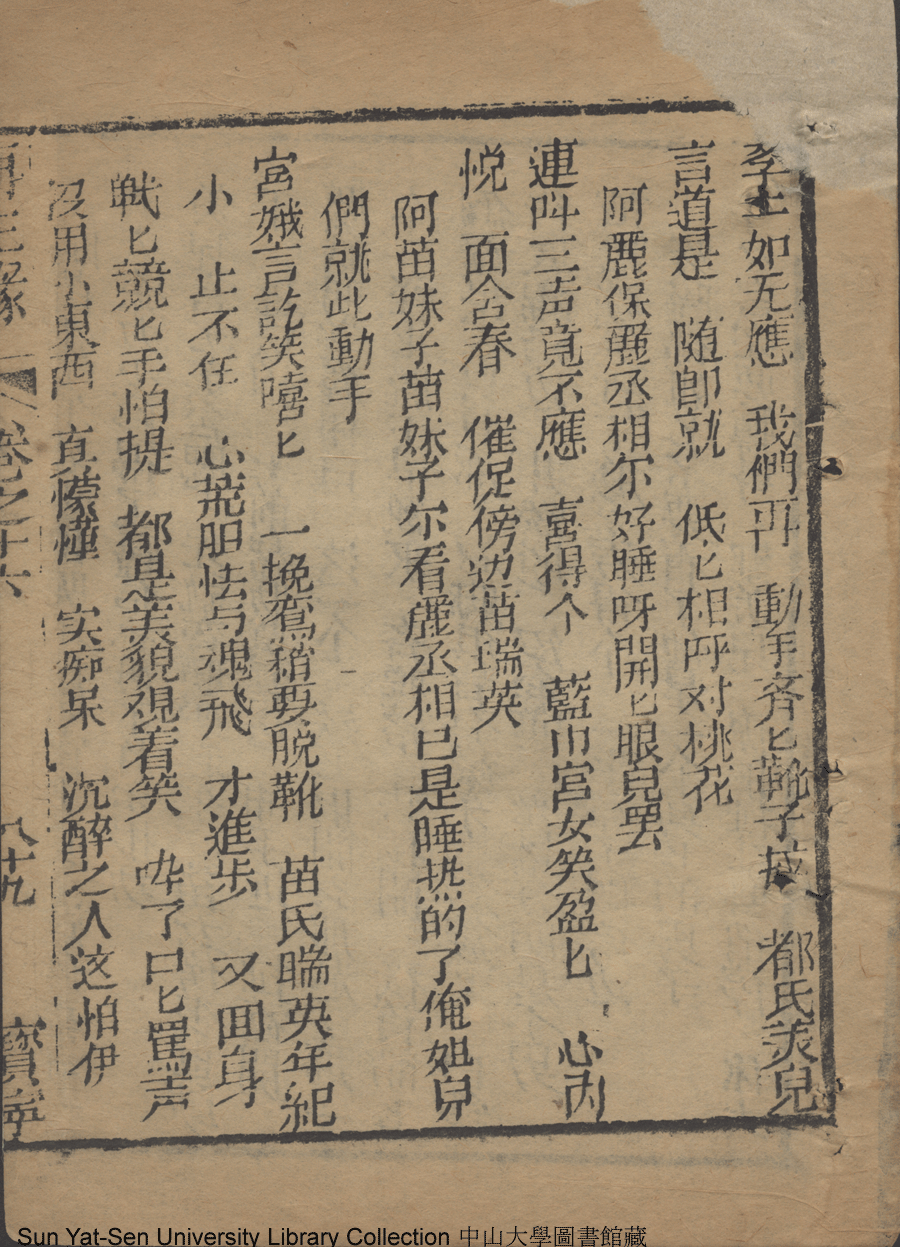 李上如无應　我們再　動手斉匕靴子扳　都氏美兒
言道是　随卽就　低匕相呼对桃花
阿麗保酈丞相尔好睡呀開匕眼兒罢
連叫三声竟不應　喜得个　藍巾宮女笑盈匕　心内
悅　面含春　催促傍边苗瑞英
阿苗妹子苗妹子尔看酈丞相已是睡熟的了俺姐兒
們就此動手
宮娥言訖笑嘻匕　一挽鴛稍要脫靴　苗氏瑞英年紀
小　止不住　心荒胆怯与魂飛　才進步　又囬身
戰匕兢匕手怕提　都是美貌观着笑　啐了口匕罵声
没用小東西　真懞憧　实痴呆　沉醉之人这怕伊
再生缘　卷之十六　八十九　寳寧
Sun Yat-Sen University Library Collection 中山大學圖書館藏